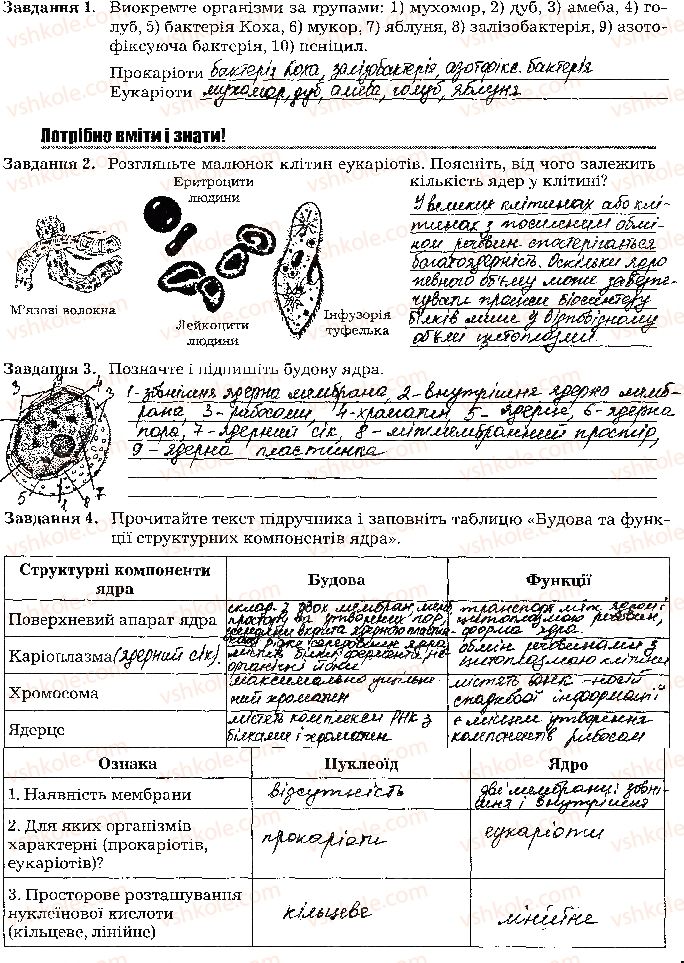 Завдання 1. Виокремте організми за групами: 1) мухомор, 2) дуб, 3) амеба, 4) го-
луб, 5) бактерія Коха, 6) мукор, 7) яблуня, 8) залізобактерія, 9) азото-
фіксуюча бактерія, 10) пеніцил.
Прокаріоти бактерія Коха, залізобактерія, азотфікс. бактерія
Еукаріоти мухомор, дуб, амеба, голуб, яблуня
Потрібно вміти і знати!
Завдання 2. Розгляньте малюнок клітин еукаріотів. Поясніть, від чого залежить
кількість ядер у клітині?
Еритроцити
людини
М'язові волокна
Лейкоцити
людини
Інфузорія
туфелька
У великих клітинах або клі-
тинах з посиленим обмі-
ном речовин спостерігається
багатоядерність. Оскільки ядро
певного об'єму може забезпе-
чувати процеси біосинтезу
білків лише у відповідному
об'ємі цитоплазми.
Завдання 3. Позначте і підпишіть будову ядра.
1-зовнішня ядерна мембрана, 2-внутрішня ядерна мемб-
рана, 3-рибосоми, 4-хроматин, 5-ядерце, 6-ядерна
пора, 7-ядерний сік, 8-міжмембранний простір,
9-ядерна пластинка
Завдання 4. Прочитайте текст підручника і заповніть таблицю «Будова та функ-
ції структурних компонентів ядра».
Структурні компоненти
ядра
Будова
Функції
Поверхневий апарат ядра
склад. з двох мембран, між
простору та утворених пор,
транспорт між ядром і
цитоплазмою речовин,
форма ядра.
Каріоплазма (ядерний сік).
містить білки ферменти, не-
органічні йони
обмін речовинами з
цитоплазмою клітини
Хромосома
максимально ущільне-
ний хроматин
містять ДНК -носій
спадкової інформації
Ядерце
містить комплекси РНК з
білками і хроматин
є місцем утворення
компонентів рибосом
Ознака
Нуклеоїд
Ядро
1. Наявність мембрани
відсутність
дві мембрани: зовні-
шня і внутрішня
2. Для яких організмів
характерні (прокаріотів,
еукаріотів)?
прокаріоти
еукаріоти
3. Просторове розташування
нуклеїнової кислоти
(кільцеве, лінійне)
кільцеве
лінійне